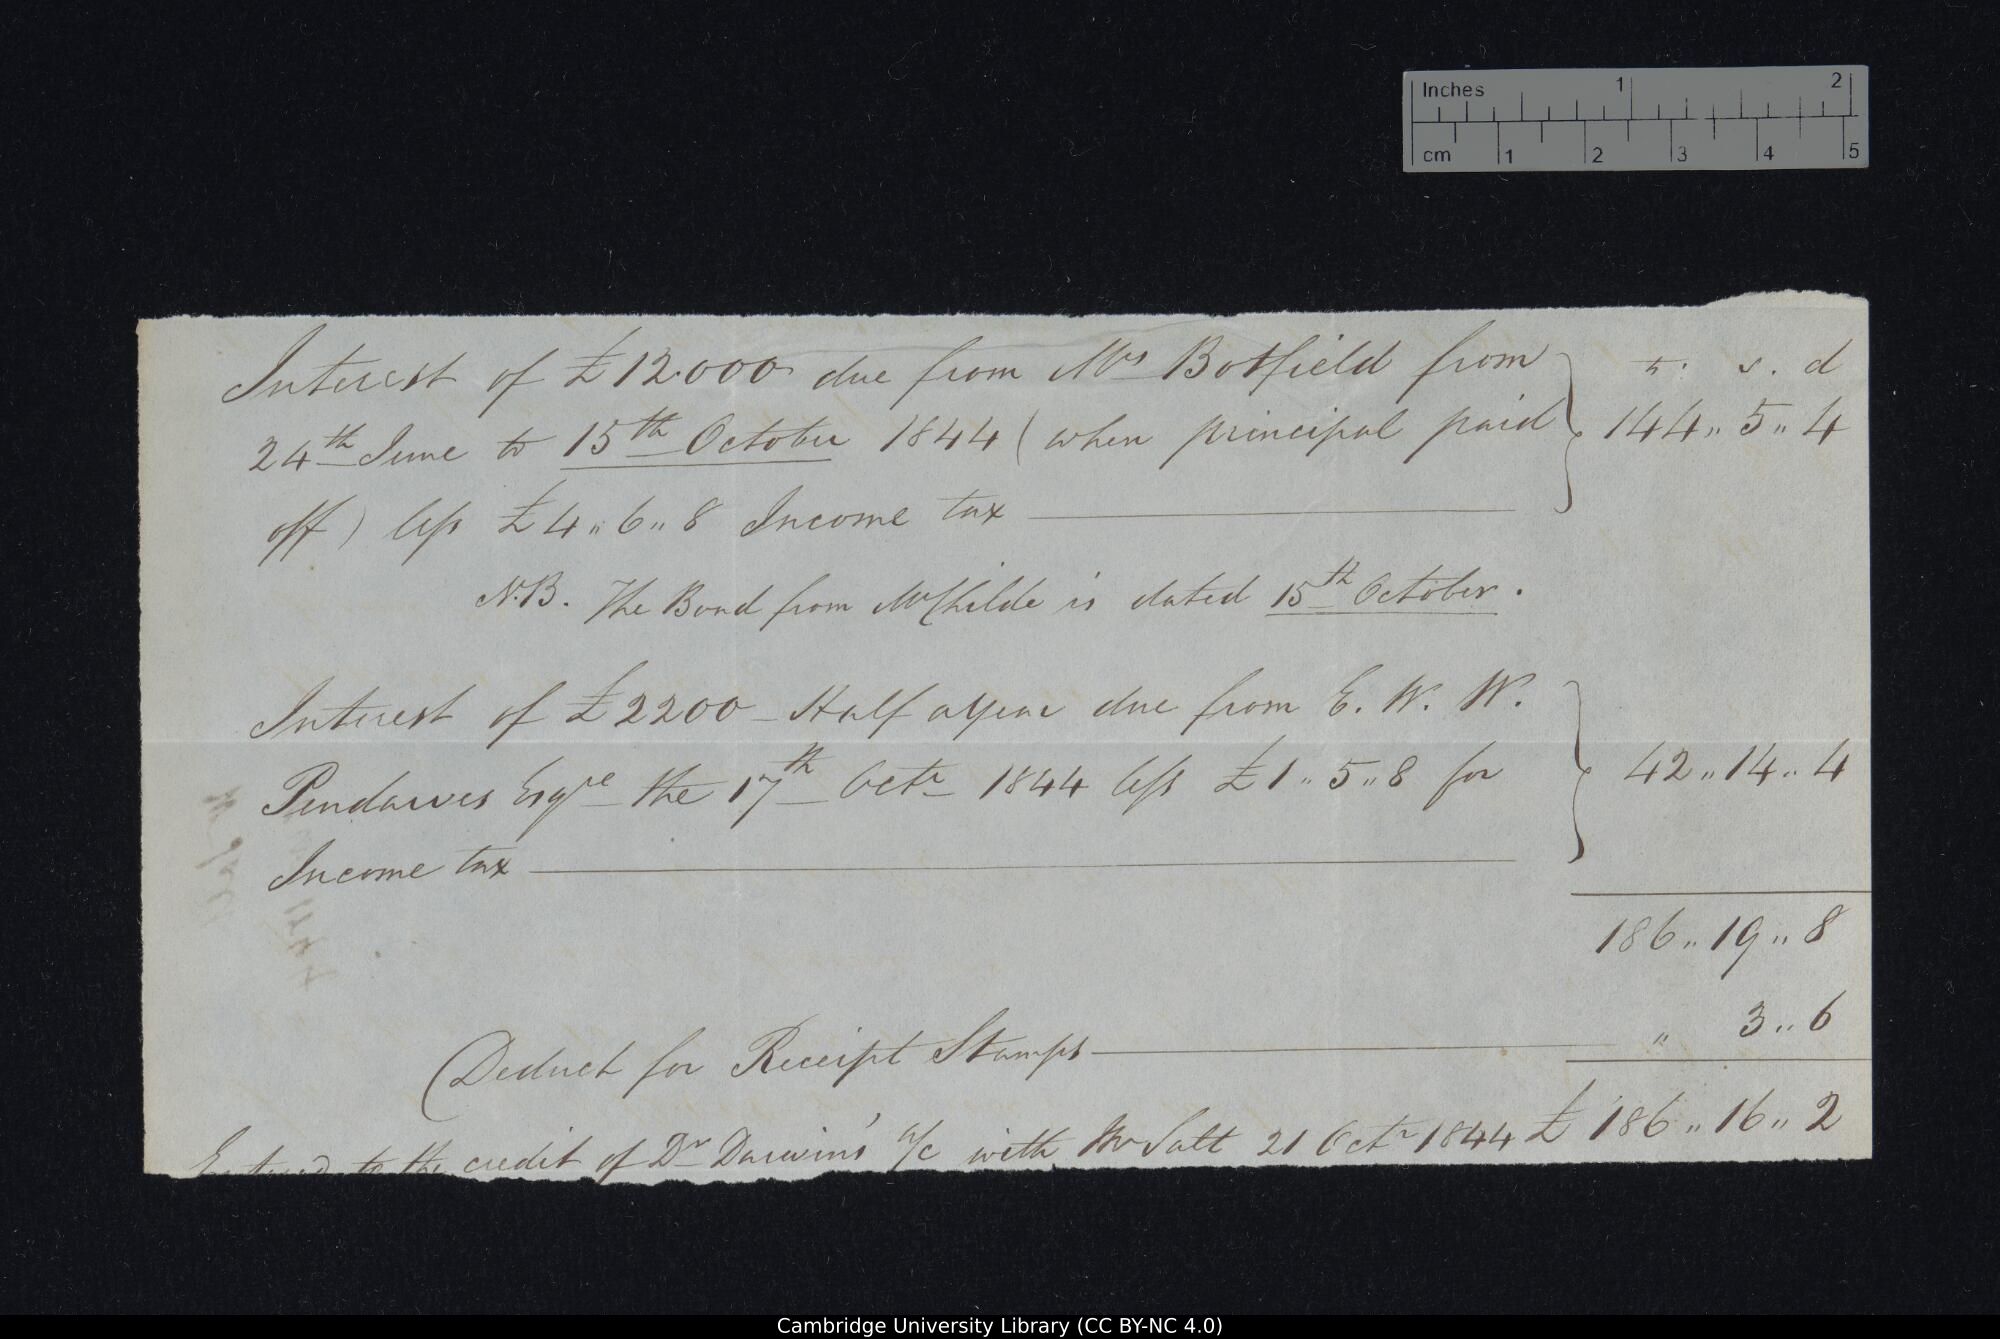 Inches 1 2
cm 1 2 3 4 5
Interest of £12000 due from Mrs Botfield from £. s. d
24th June to 15th October 1844 (when principal paid 144〃 5〃 4
off) less £4〃6〃8 Income tax
N.B. The Bond from Mr Childe is dated 15th October.
Interest of £2200 - Half a year due from E. W. W.
Pendarves Esqre the 17th Octr 1844 less £1〃5〃8 for 42〃14〃4
Income tax
186〃19〃8
(Deduct for Receipt Stamps 〃 3〃6
Entered to the credit of Dr Darwin's a/c with Mr Salt 21 Octr 1844 £ 186〃16〃2
Cambridge University Library (CC BY-NC 4.0)